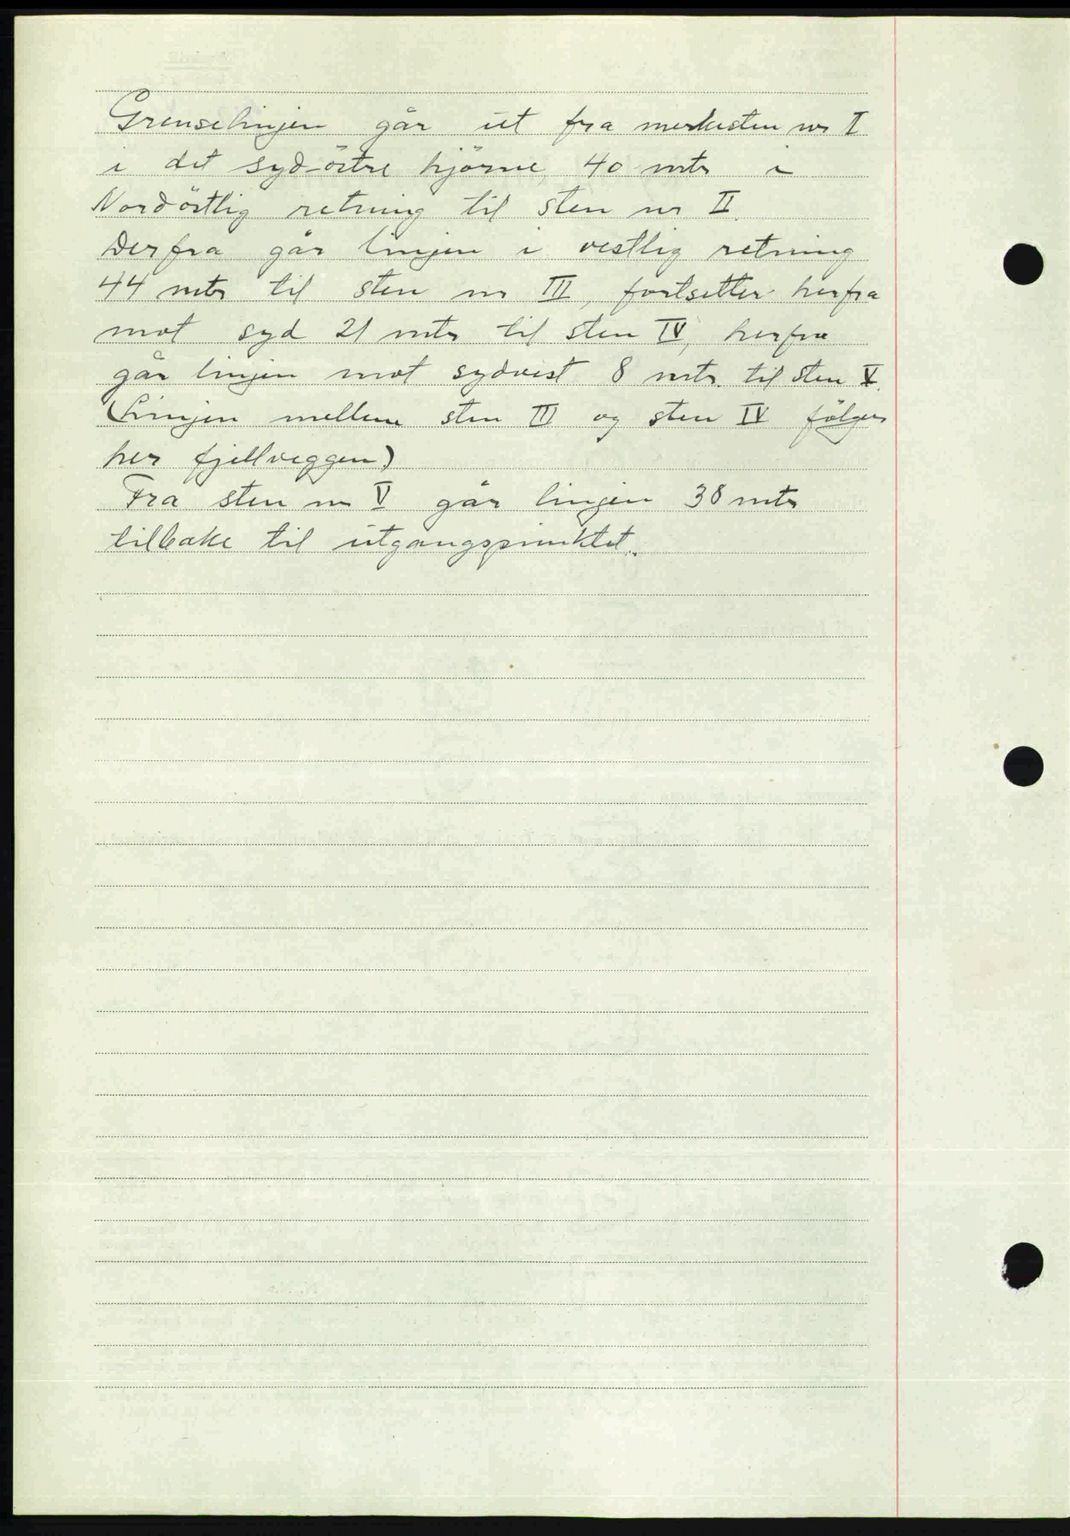 Grenselinjen går ut fra merkesten nr I
i det syd-östre hjörne, 40 mtr i
Nordöstlig retning til sten nr II.
Derfra går linjen i vestlig retning
44 mtr til sten nr III, fortsetter herfra
mot syd 21 mtr til sten IV, herfra
går linjen mot sydvest 8 mtr. til sten V.
(Linjen mellem sten III og sten IV fölger
her fjellveggen)
Fra sten nr V går linjen 38 mtr
tilbake til utgangspunktet.